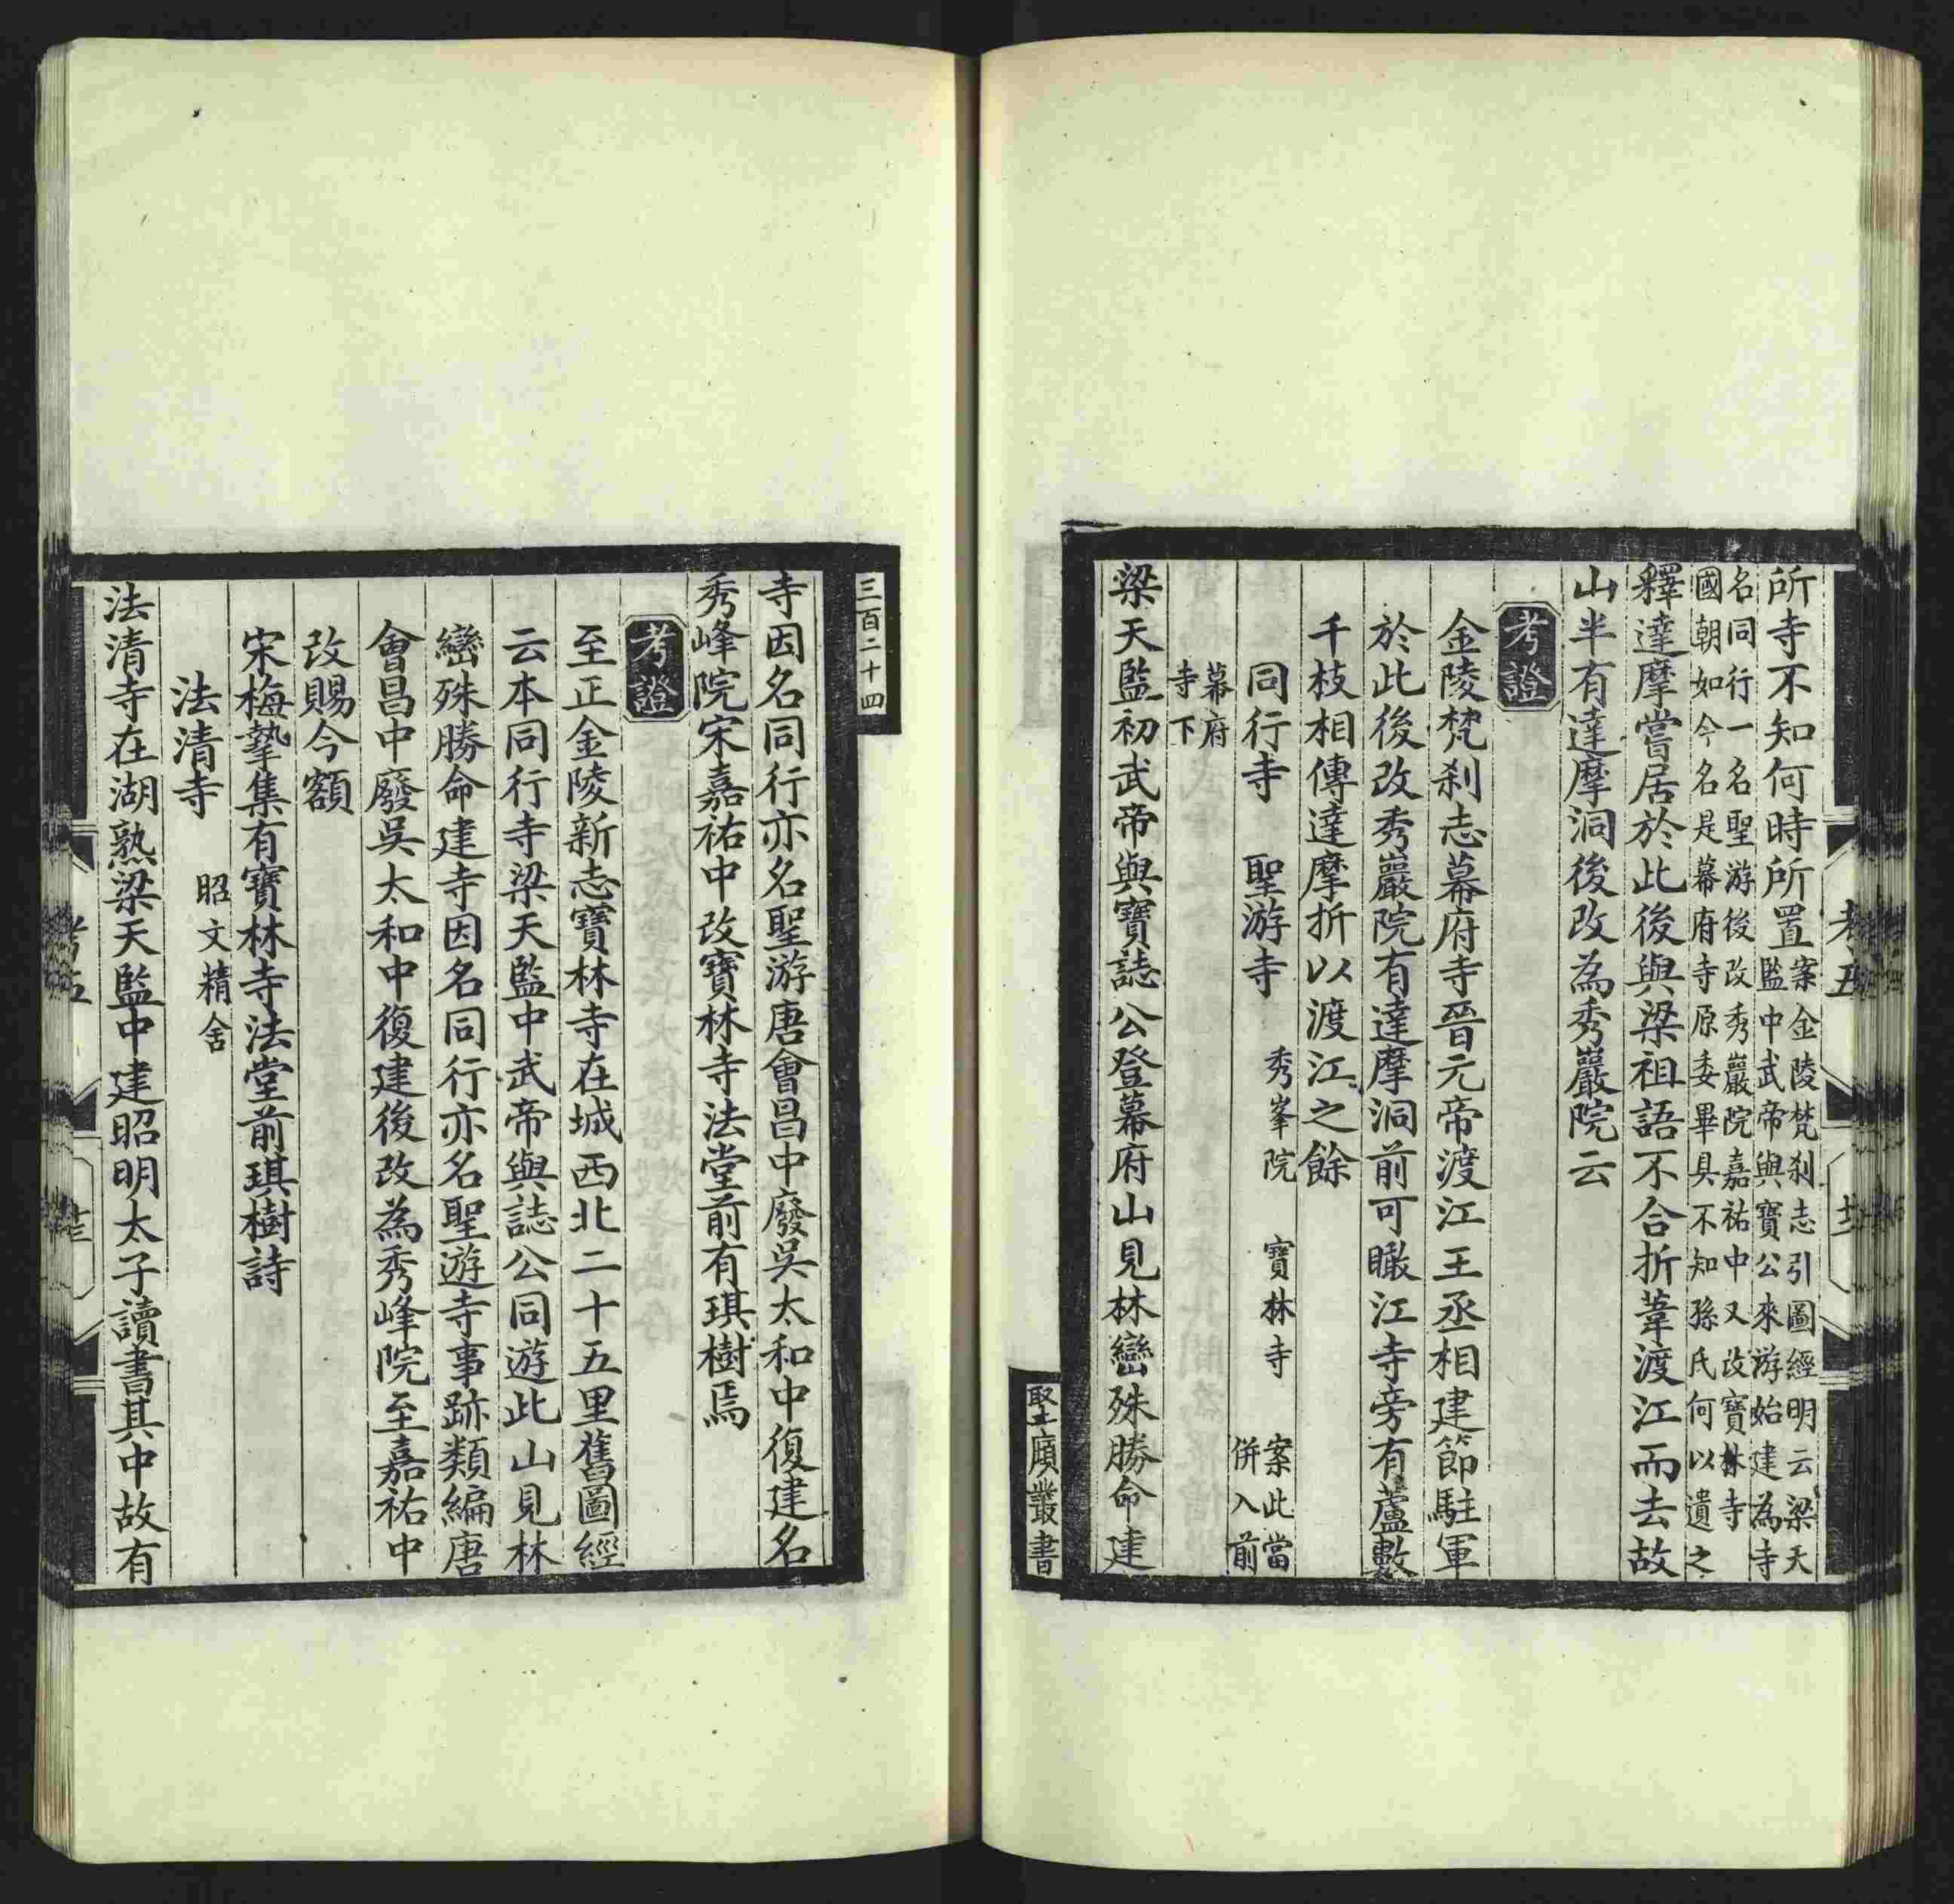 所寺不知何時所置案金陵梵刹志引圖經明云梁天
監中武帝與寶公來游始建為寺
名同行一名聖游後改秀巖院嘉祐中又改寶林寺
國朝如今名是幕府寺原委畢具不知孫氏何以遺之
釋達摩嘗居於此後與梁祖語不合折葦渡江而去故
山半有達摩洞後改為秀巖院云
考證
金陵梵刹志幕府寺晉元帝渡江王丞相建節駐軍
於此後改秀巖院有達摩洞前可瞰江寺旁有蘆數
千枝相傳達摩折以渡江之餘
同行寺 聖游寺 秀峯院 寶林寺 案此當
併入前
幕府
寺下
梁天監初武帝與寶誌公登幕府山見林巒殊勝命建
堅廎叢書
三百二十四
寺因名同行亦名聖游唐會昌中廢吳太和中復建名
秀峰院宋嘉祐中改寶林寺法堂前有琪樹焉
考證
至正金陵新志寶林寺在城西北二十五里舊圖經
云本同行寺梁天監中武帝與誌公同遊此山見林
巒殊勝命建寺因名同行亦名聖遊寺事跡類編唐
會昌中廢吳太和中復建後改為秀峰院至嘉祐中
改賜今額
宋梅摯集有寶林寺法堂前琪樹詩
法清寺 昭文精舍
法清寺在湖熟梁天監中建昭明太子讀書其中故有